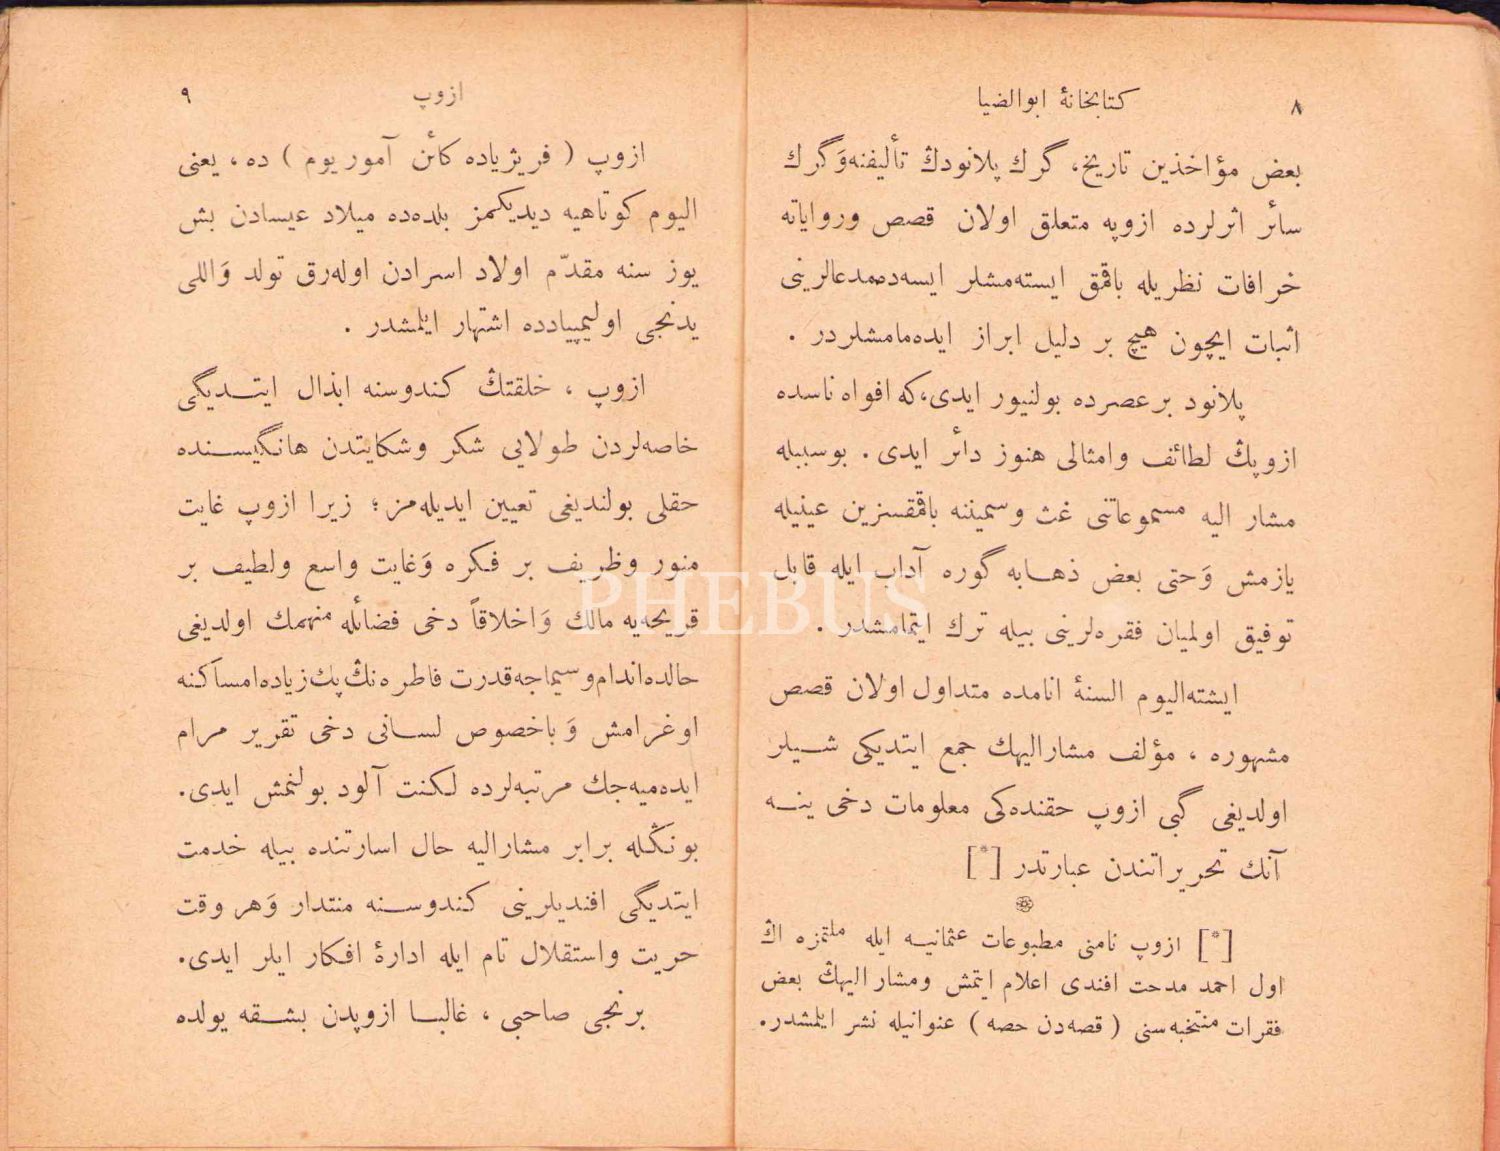 ٨
كتابخانۀ ابوالضيا
بعض مؤاخذين تاريخ، گرك پلانودڭ تأليفنه وَگرك
سائر اثرلرده ازوپه متعلق اولان قصص ورواياته
خرافات نظريله باقمق ايسته‌مشلر ايسه‌ده‌مدعالرينى
اثبات ايچون هيچ بر دليل ابراز ايده‌مامشلردر .
پلانود بر عصرده بولنيور ايدى،كه افواه ناسده
ازوپڭ لطائف وامثالى هنوز دائر ايدى . بوسببله
مشار اليه مسموعاتنى غث وسميننه باقمقسزين عينيله
يازمش وَحتى بعض ذهـابه گوره آداب ايله قابل
توفيق اولميان فقره‌لرينى بيله ترك ايتمامشدر .
ايشته‌اليوم السنۀ انامده متداول اولان قصص
مشهوره ، مؤلف مشاراليهك جمع ايتديكى شـيلر
اولديغى گبى ازوپ حقنده‌كى معلومات دخى ينـه
آنك تحريراتندن عبارتدر [*]
[*] ازوپ نامنى مطبوعات عثمانيـه ايله ملتمزه اڭ
اول احمد مدحت افندى اعلام ايتمش ومشار اليهڭ بعض
فقرات منتخبه‌سنى ( قصه‌دن حصه ) عنوانيله نشر ايلمشدر.
ازوپ
٩
ازوپ ( فريژياده كائن آموريوم ) ده ، يعنى
اليوم كوتاهيه ديديكمز بلده‌ده ميلاد عيسادن بش
يوز سنه مقدّم اولاد اسرادن اوله‌رق تولد وَاللى
يدنجى اوليمپيادده اشتهار ايلمشدر .
ازوپ ، خلقتڭ كندوسنه ابذال ايتـديگى
خاصه‌لردن طولايى شكر وشكايتدن هانگيسـنده
حقلى بولنديغى تعيين ايديله‌مز ؛ زيرا ازوپ غايت
منور وظريف بر فكره وَغايت واسع ولطيف بر
قريحه‌يه مالك وَاخلاقاً دخى فضائله منهمك اولديغى
حالده‌اندام‌وسيماجه‌قدرت فاطره‌نڭ پك‌زياده‌امساكنه
اوغرامش وَباخصوص لسـانى دخى تقرير مرام
ايده‌ميه‌جك مرتبه‌لرده لـكنت آلود بولنمش ايدى.
بونڭله برابر مشاراليه حال اسارتنده بيله خدمت
ايتديگى افنديلرينى كندوسـنه منتدار وَهر وقت
حريت واستقلال تام ايله ادارۀ افـكار ايلر ايدى.
برنجى صاحبى ، غالبـا ازوپدن بشـقه يولده